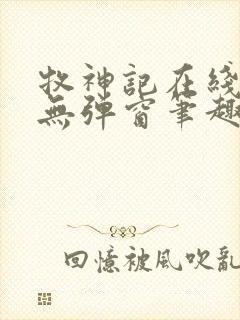 牧神記在綫
無弹窗笔趣
回憶被風吹亂